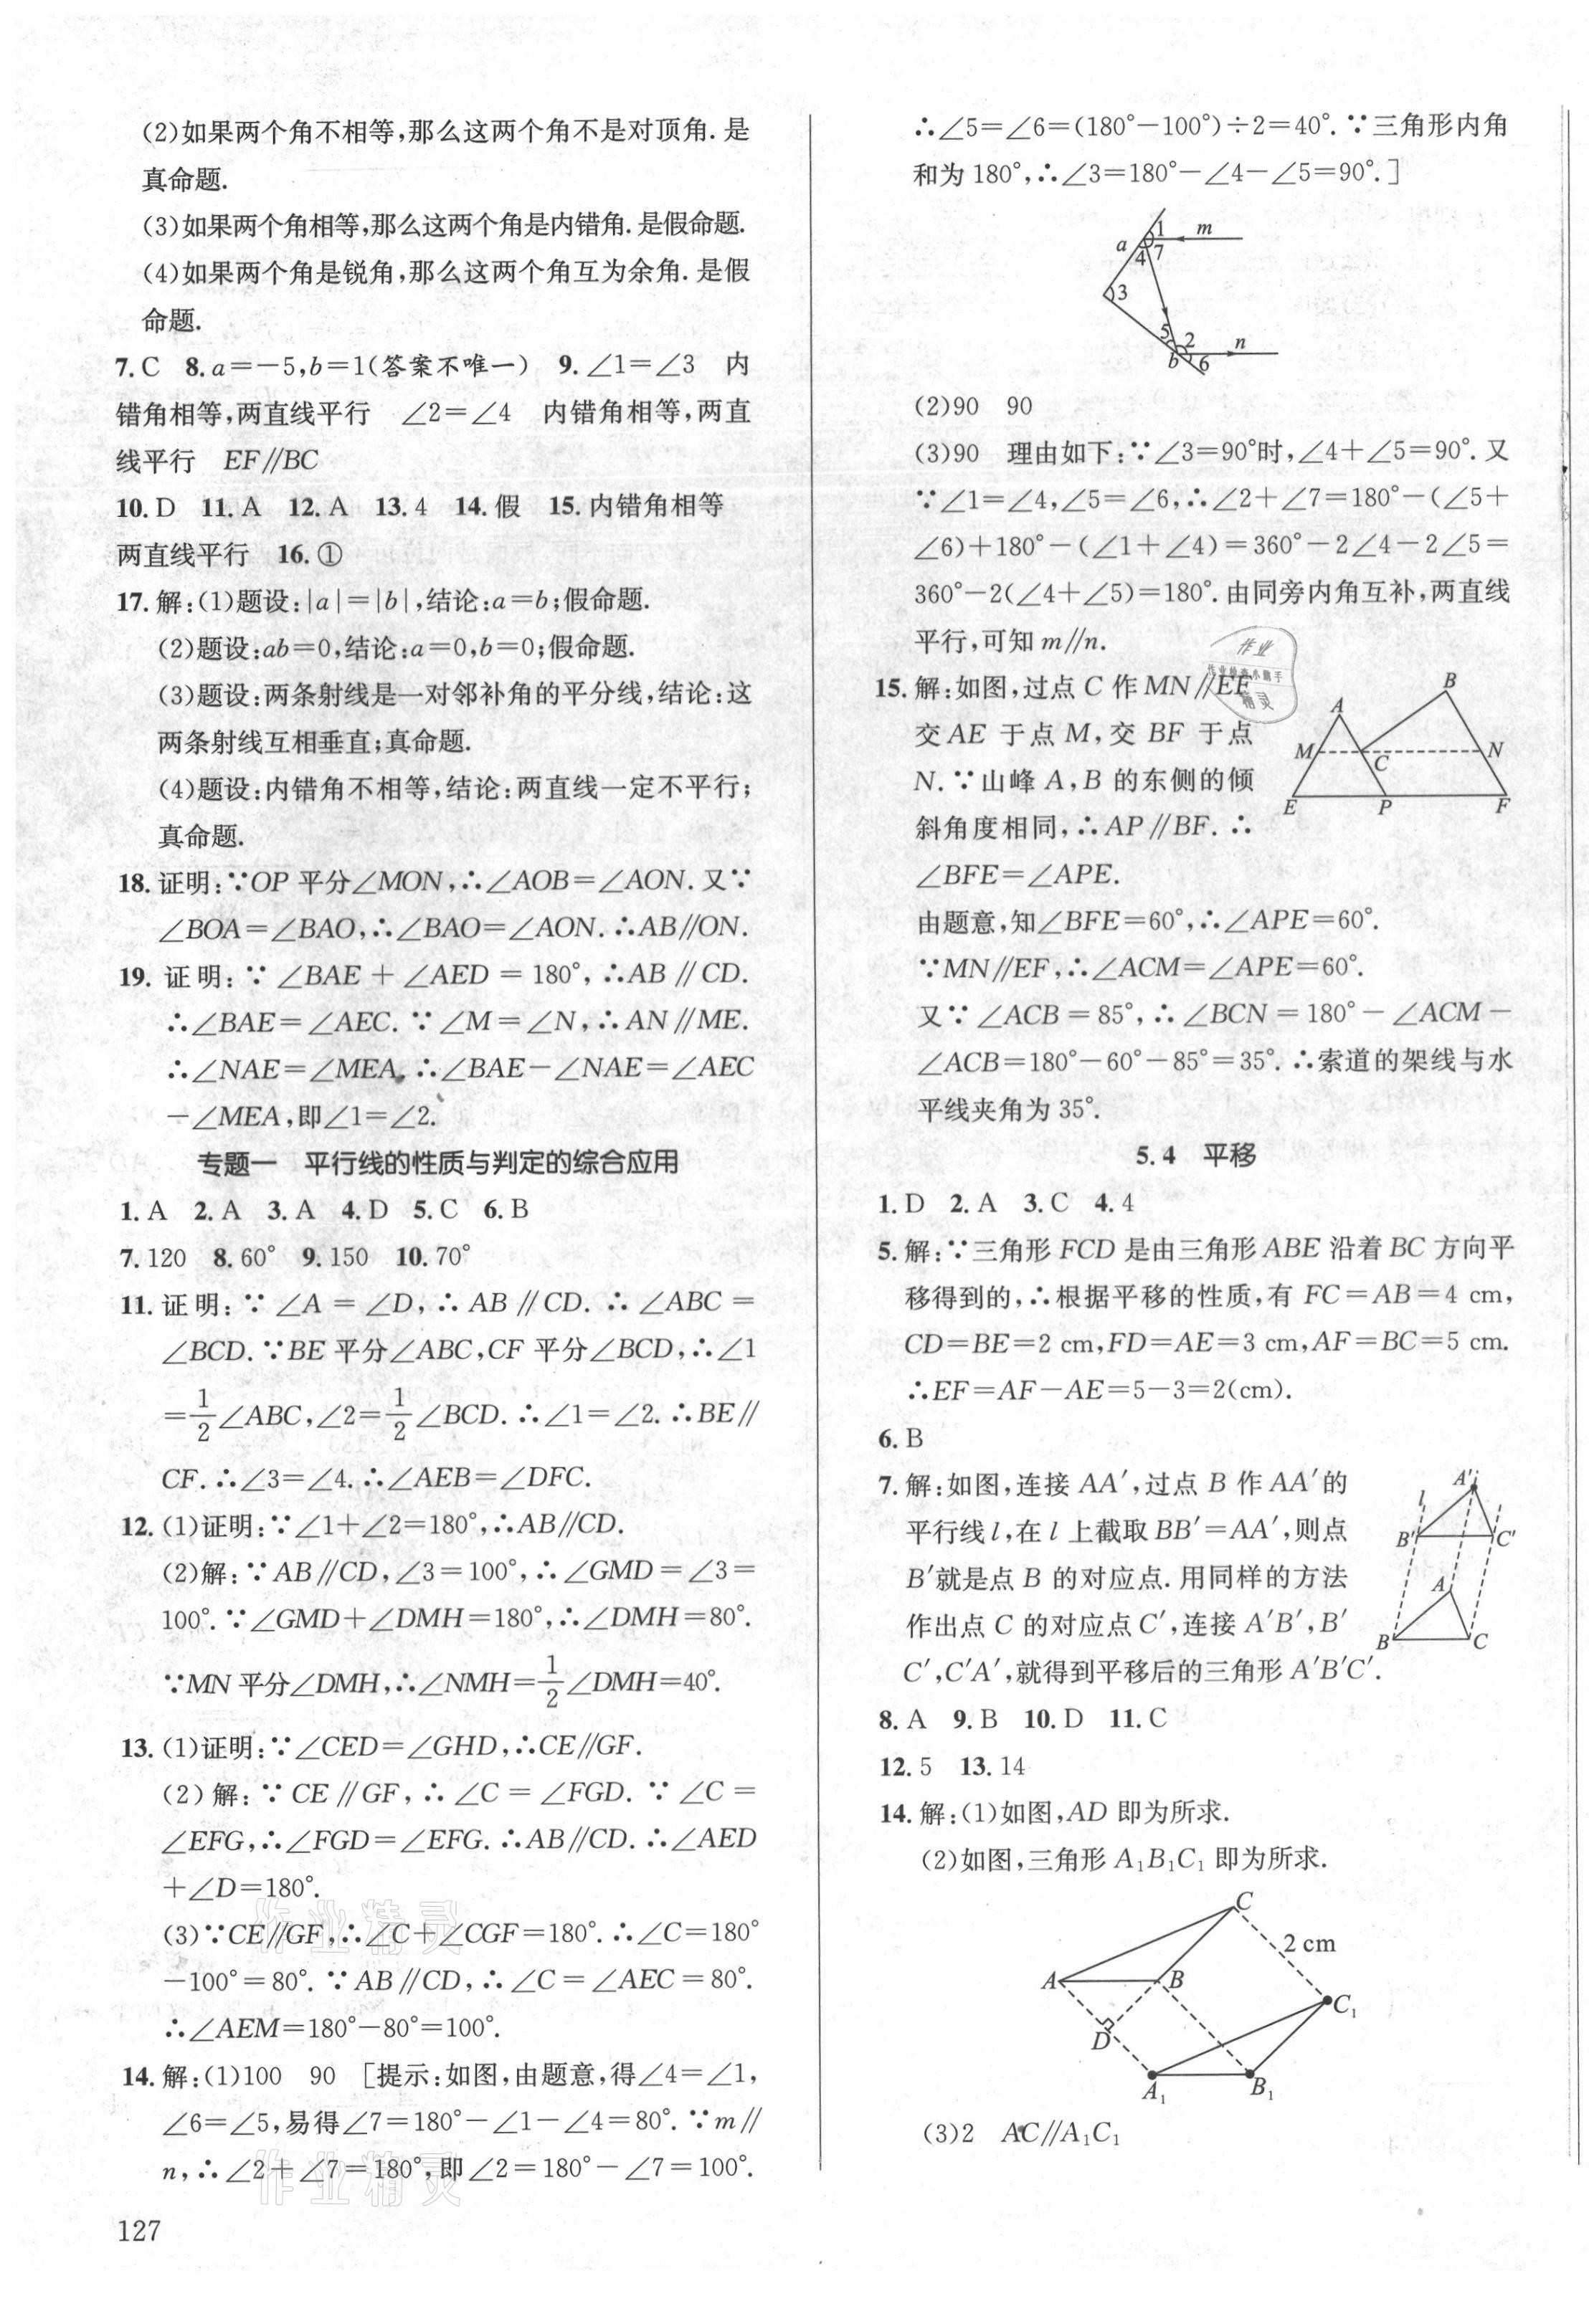 (2)如果两个角不相等,那么这两个角不是对顶角. 是
真命题.
(3)如果两个角相等,那么这两个角是内错角. 是假命题.
(4)如果两个角是锐角,那么这两个角互为余角. 是假
命题.
7. C 8. a=-5,b=1(答案不唯一) 9. ∠1=∠3 内
错角相等,两直线平行 ∠2=∠4 内错角相等,两直
线平行 EF∥BC
10. D 11. A 12. A 13. 4 14. 假 15. 内错角相等
两直线平行 16. ①
17. 解:(1)题设:|a|=|b|,结论:a=b;假命题.
(2)题设:ab=0,结论:a=0,b=0;假命题.
(3)题设:两条射线是一对邻补角的平分线,结论:这
两条射线互相垂直;真命题.
(4)题设:内错角不相等,结论:两直线一定不平行;
真命题.
18. 证明:∵OP 平分∠MON,∴∠AOB=∠AON. 又∵
∠BOA=∠BAO,∴∠BAO=∠AON. ∴AB∥ON.
19. 证明:∵ ∠BAE + ∠AED = 180°, ∴AB∥CD.
∴∠BAE=∠AEC. ∵∠M=∠N,∴AN∥ME.
∴∠NAE=∠MEA. ∴∠BAE-∠NAE=∠AEC
-∠MEA,即∠1=∠2.
专题一 平行线的性质与判定的综合应用
1. A 2. A 3. A 4. D 5. C 6. B
7. 120 8. 60° 9. 150 10. 70°
11. 证明:∵ ∠A = ∠D,∴ AB∥CD. ∴ ∠ABC =
∠BCD. ∵BE 平分∠ABC,CF 平分∠BCD,∴∠1
=1/2∠ABC,∠2=1/2∠BCD. ∴∠1=∠2. ∴BE∥
CF. ∴∠3=∠4. ∴∠AEB=∠DFC.
12. (1)证明:∵∠1+∠2=180°,∴AB∥CD.
(2)解:∵AB∥CD,∠3=100°,∴∠GMD=∠3=
100°. ∵∠GMD+∠DMH=180°,∴∠DMH=80°.
∵MN 平分∠DMH,∴∠NMH=1/2∠DMH=40°.
13. (1)证明:∵∠CED=∠GHD,∴CE∥GF.
(2)解:∵ CE∥GF,∴ ∠C = ∠FGD. ∵ ∠C =
∠EFG,∴∠FGD=∠EFG. ∴AB∥CD. ∴∠AED
+∠D=180°.
(3)∵CE∥GF,∴∠C+∠CGF=180°. ∴∠C=180°
-100°=80°. ∵AB∥CD,∴∠C=∠AEC=80°.
∴∠AEM=180°-80°=100°.
14. 解:(1)100 90 [提示:如图,由题意,得∠4=∠1,
∠6=∠5,易得∠7=180°-∠1-∠4=80°. ∵m∥
n,∴∠2+∠7=180°,即∠2=180°-∠7=100°.
作业精灵
作业精灵
127
∴∠5=∠6=(180°-100°)÷2=40°. ∵三角形内角
和为180°,∴∠3=180°-∠4-∠5=90°.]
1 m
a 4 7
3
5 2 n
b 6
(2)90 90
(3)90 理由如下:∵∠3=90°时,∠4+∠5=90°. 又
∵∠1=∠4,∠5=∠6,∴∠2+∠7=180°-(∠5+
∠6)+180°-(∠1+∠4)=360°-2∠4-2∠5=
360°-2(∠4+∠5)=180°. 由同旁内角互补,两直线
平行,可知 m∥n.
作业
精灵
15. 解:如图,过点 C 作 MN∥EF,
交 AE 于点 M,交 BF 于点
N. ∵山峰 A,B 的东侧的倾
斜角度相同,∴AP∥BF. ∴
∠BFE=∠APE.
B
A
M C N
E P F
由题意,知∠BFE=60°,∴∠APE=60°.
∵MN∥EF,∴∠ACM=∠APE=60°.
又∵ ∠ACB=85°,∴ ∠BCN=180°-∠ACM-
∠ACB=180°-60°-85°=35°. ∴索道的架线与水
平线夹角为 35°.
5.4 平移
1. D 2. A 3. C 4. 4
5. 解:∵三角形 FCD 是由三角形 ABE 沿着 BC 方向平
移得到的,∴根据平移的性质,有 FC=AB=4 cm,
CD=BE=2 cm,FD=AE=3 cm,AF=BC=5 cm.
∴EF=AF-AE=5-3=2(cm).
6. B
7. 解:如图,连接 AA′,过点 B 作 AA′的
平行线 l,在 l 上截取 BB′=AA′,则点
B′就是点 B 的对应点. 用同样的方法
作出点 C 的对应点 C′,连接 A′B′,B′
C′,C′A′,就得到平移后的三角形 A′B′C′.
A′
l
B′ C′
A
B C
8. A 9. B 10. D 11. C
12. 5 13. 14
14. 解:(1)如图,AD 即为所求.
(2)如图,三角形 A₁B₁C₁ 即为所求.
C
2 cm
A B
C₁
D
A₁ B₁
(3)2 AC∥A₁C₁